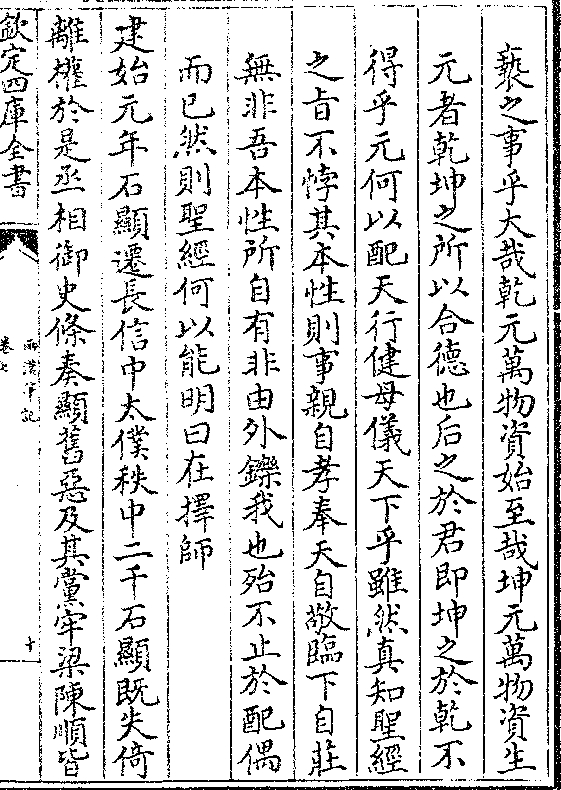 褻之事乎大哉乾元萬物資始至哉坤元萬物資生
元者乾坤之所以合德也后之於君即坤之於乾不
得乎元何以配天行健母儀天下乎雖然真知聖經
之旨不悖其本性則事親自孝奉天自敬臨下自莊
無非吾本性所自有非由外鑠我也殆不止於配偶
而已然則聖經何以能明曰在擇師
建始元年石顯遷長信中太僕秩中二千石顯既失倚
離權於是丞相御史條奏顯舊惡及其黨牢梁陳順皆
欽定四庫全書
兩漢筆記
卷
十